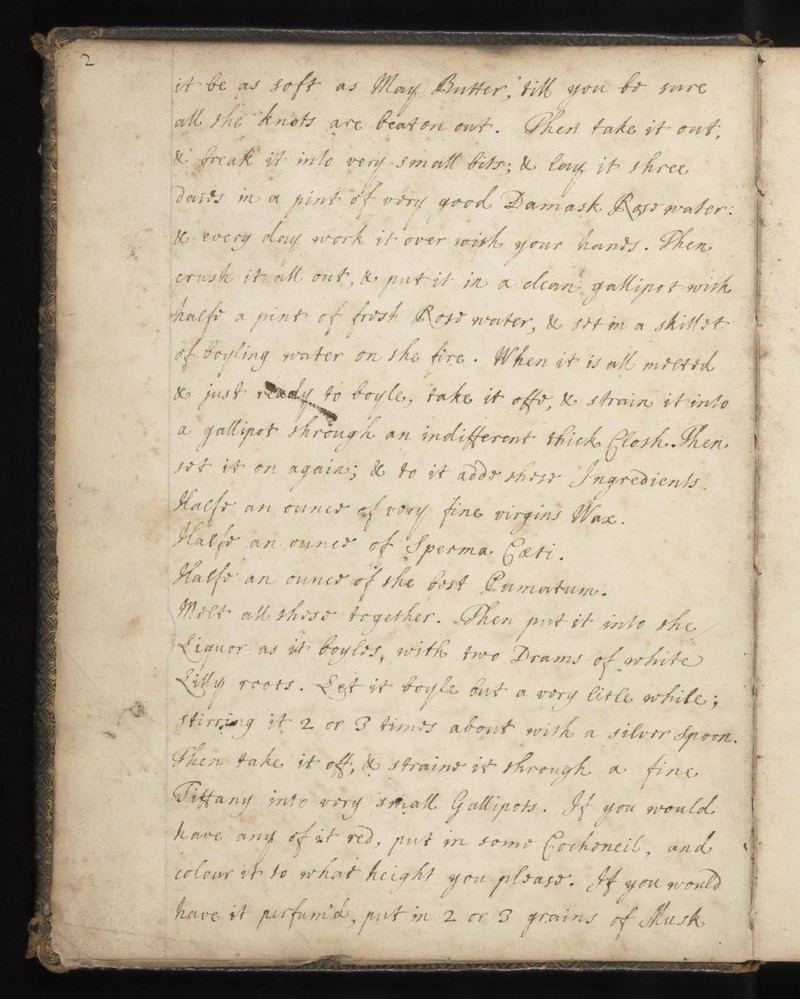 2
it be as soft as May Butter, till you be sure
all the knots are beaten out. Then take it out;
& break it into very small bits; & lay it three
daies in a pint of very good Damask Rose water:
& every day work it over with your hands. Then
crush it all out, & put it in a clean gallipot with
halfe a pint of fresh Rose water, & set in a skillet
of boyling water on the fire. When it is all melted
& just ready to boyle, take it offe, & strain it into
a gallipot through an indifferent thick Cloth. Then
set it on again; & to it adde these Ingredients.
Halfe an ounce of very fine virgins Wax.
Halfe an ounce of Sperma Cæti.
Halfe an ounce of the best Pumatum.
Melt all these together. Then put it into the
Liquor as it boyles, with two Drams of white
Lilly roots. Let it boyle but a very litle while;
stirring it 2 or 3 times about with a silver spoon.
Then take it off, & straine it through a fine
Tiffany into very small Gallipots. If you would
have any of it red, put in some Cochoneil, and
colour it to what height you please. If you would
have it perfum'd, put in 2 or 3 grains of Musk